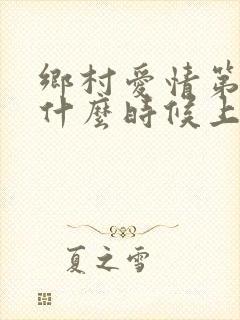 鄉村愛情第
什麼時候上
夏之雪